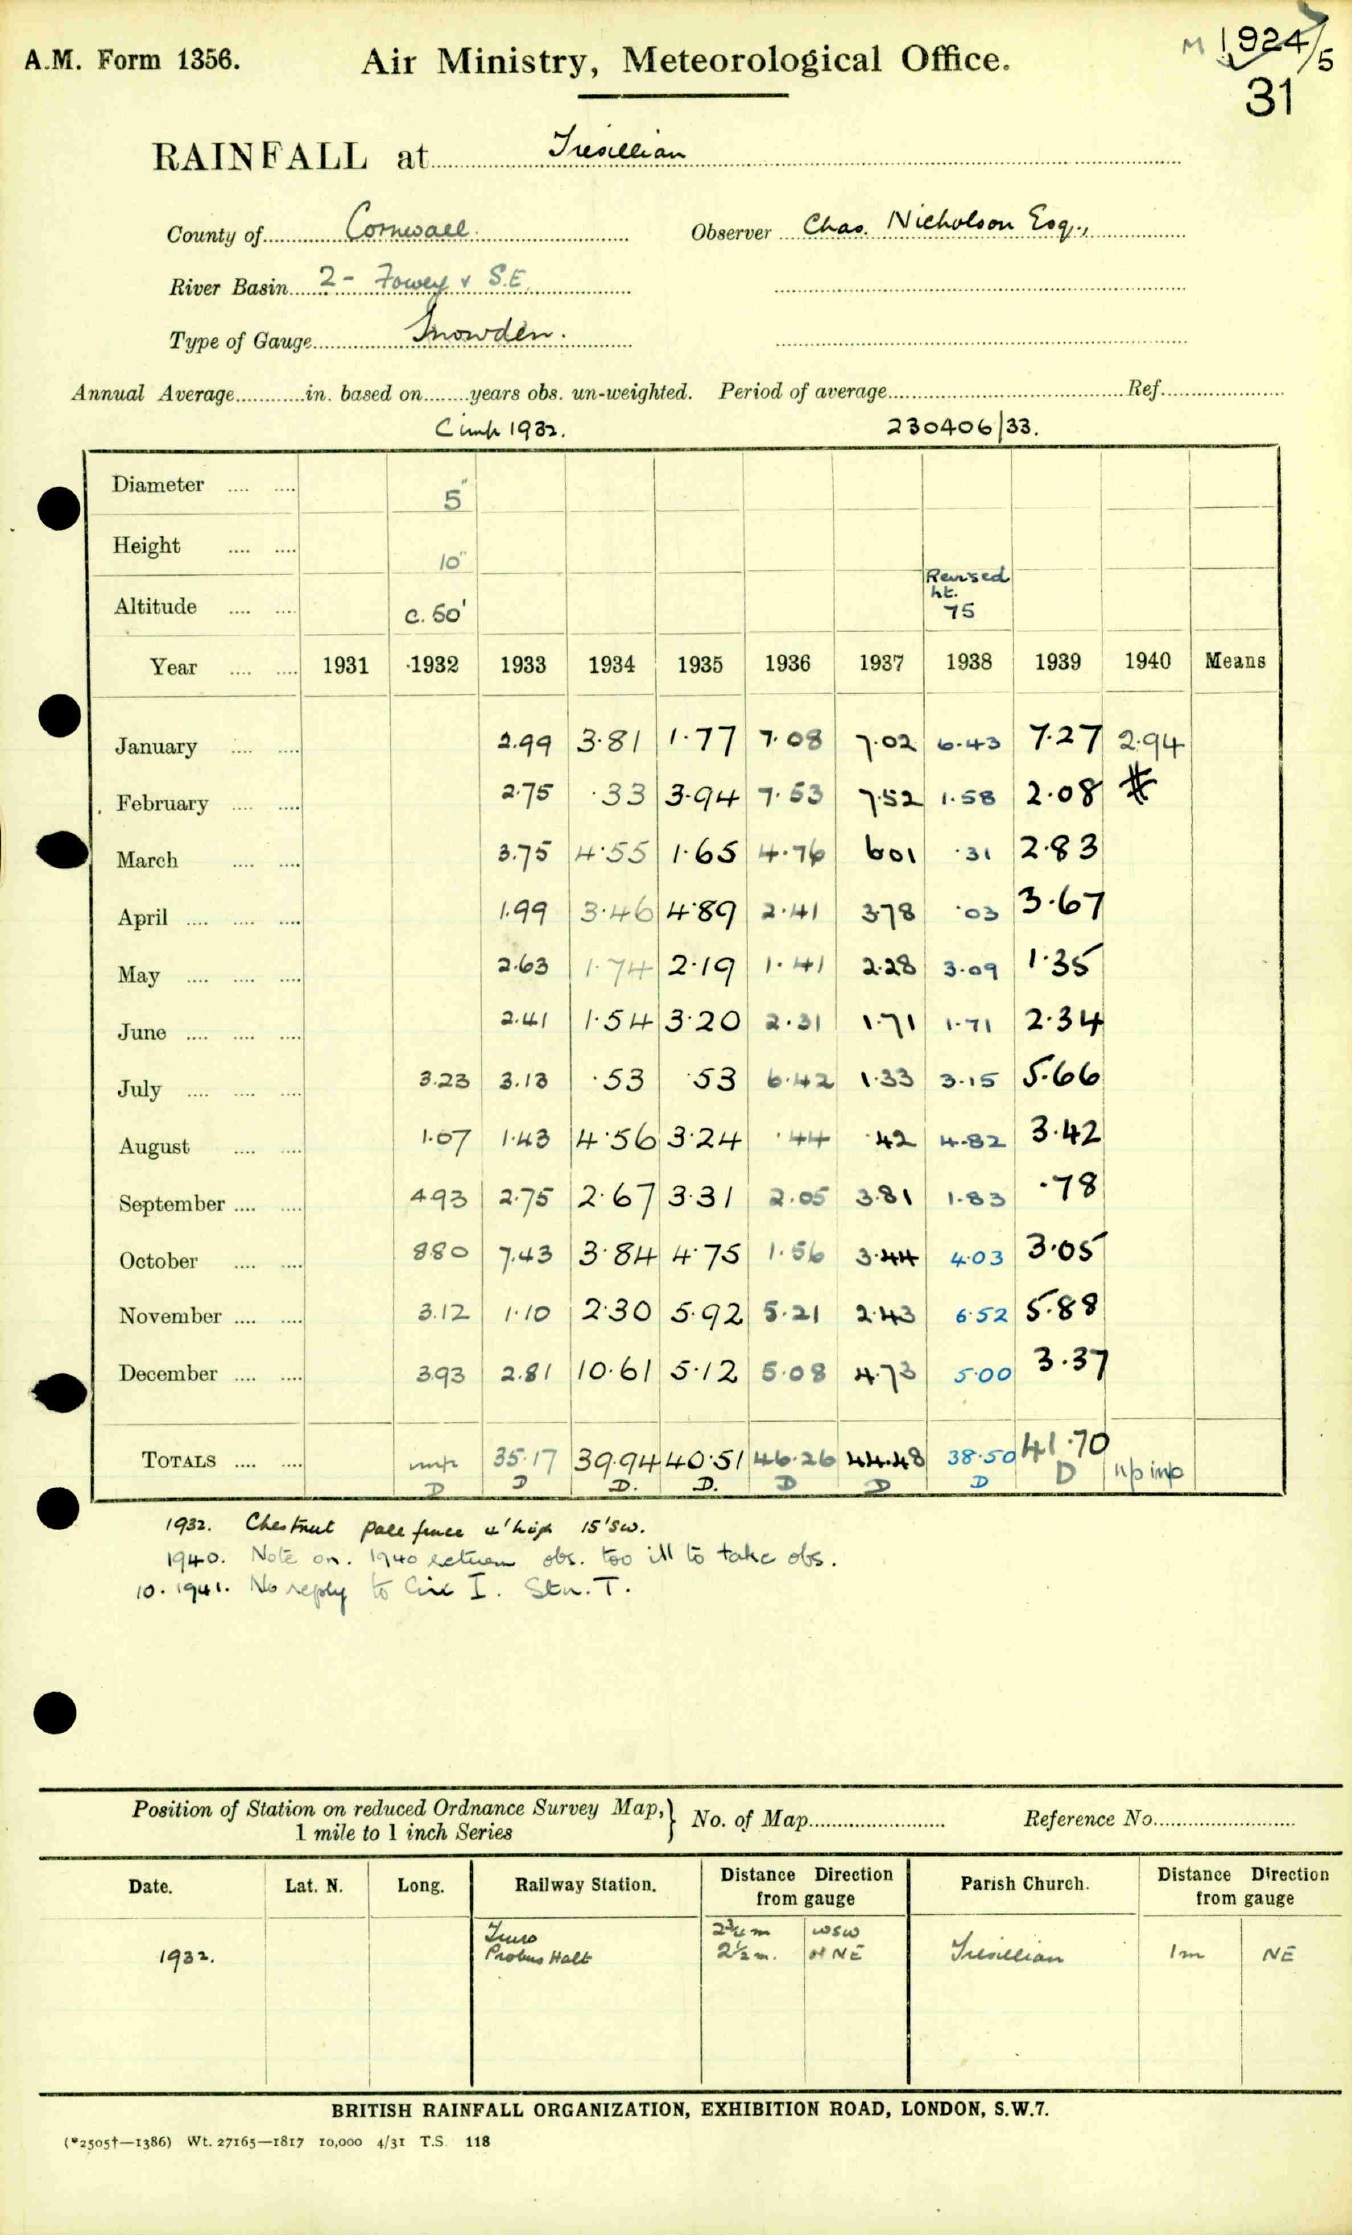 A.M. Form 1356.
Air Ministry, Meteorological Office.
M 1924/5
31
RAINFALL at Tresillian
County of Cornwall.
Observer Chas. Nicholson Esq.,
River Basin 2 - Fowey & S.E.
Type of Gauge Snowden.
Annual Average in. based on years obs. un-weighted. Period of average Ref.
1932. 230406/33.
Diameter 5"
Height 10"
Altitude c. 60' Revised ht. 75
Year 1931 1932 1933 1934 1935 1936 1937 1938 1939 1940 Means
January 2.99 3.81 1.77 7.08 7.02 6.43 7.27 2.94
February 2.75 .33 3.94 7.53 7.52 1.58 2.08 #
March 3.75 4.55 1.65 4.76 601 .31 2.83
April 1.99 3.46 4.89 2.41 3.78 .03 3.67
May 2.63 1.74 2.19 1.41 2.28 3.09 1.35
June 2.41 1.54 3.20 2.31 1.71 1.71 2.34
July 3.23 3.13 .53 .53 6.42 1.33 3.15 5.66
August 1.07 1.43 4.56 3.24 .44 .42 4.82 3.42
September 4.93 2.75 2.67 3.31 2.05 3.81 1.83 .78
October 880 7.43 3.84 4.75 1.56 3.44 4.03 3.05
November 3.12 1.10 2.30 5.92 5.21 2.43 6.52 5.88
December 3.93 2.81 10.61 5.12 5.08 4.73 5.00 3.37
TOTALS imp 35.17 39.94 40.51 46.26 44.48 38.50 41.70 imp
D D D. D. D D D D
1932. Chestnut pale fence 4' high 15' SW.
1940. Note on. 1940 return obs. too ill to take obs.
10. 1941. No reply to Circ I. Stn. T.
Position of Station on reduced Ordnance Survey Map, 1 mile to 1 inch Series
No. of Map
Reference No.
Date. Lat. N. Long. Railway Station. Distance Direction from gauge Parish Church. Distance Direction from gauge
Truro 2¾ m WSW
1932. Probus Halt 2½ m. NE Tresillian 1m NE
BRITISH RAINFALL ORGANIZATION, EXHIBITION ROAD, LONDON, S.W.7.
(*2505†—1386) Wt. 27165—1817 10,000 4/31 T.S. 118